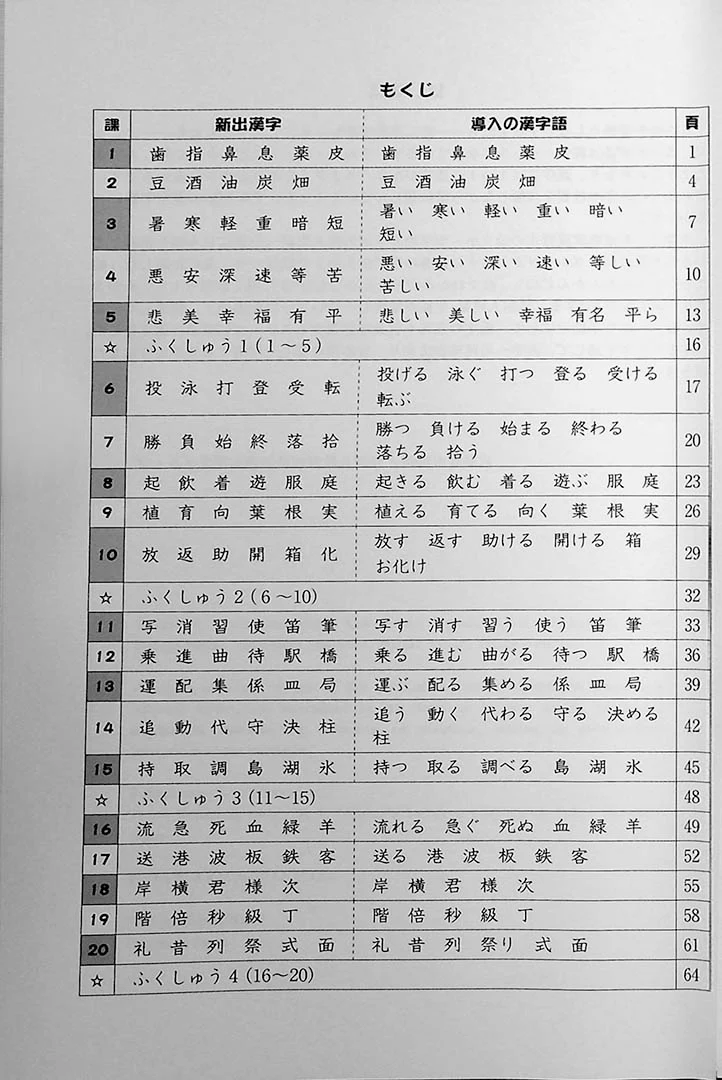 もくじ
課 新出漢字 導入の漢字語 頁
1 歯 指 鼻 息 薬 皮 歯 指 鼻 息 薬 皮 1
2 豆 酒 油 炭 畑 豆 酒 油 炭 畑 4
3 暑 寒 軽 重 暗 短 暑い 寒い 軽い 重い 暗い 7
短い
4 悪 安 深 速 等 苦 悪い 安い 深い 速い 等しい 10
苦しい
5 悲 美 幸 福 有 平 悲しい 美しい 幸福 有名 平ら 13
☆ ふくしゅう1(1～5) 16
6 投 泳 打 登 受 転 投げる 泳ぐ 打つ 登る 受ける 17
転ぶ
7 勝 負 始 終 落 拾 勝つ 負ける 始まる 終わる 20
落ちる 拾う
8 起 飲 着 遊 服 庭 起きる 飲む 着る 遊ぶ 服 庭 23
9 植 育 向 葉 根 実 植える 育てる 向く 葉 根 実 26
10 放 返 助 開 箱 化 放す 返す 助ける 開ける 箱 29
お化け
☆ ふくしゅう2(6～10) 32
11 写 消 習 使 笛 筆 写す 消す 習う 使う 笛 筆 33
12 乗 進 曲 待 駅 橋 乗る 進む 曲がる 待つ 駅 橋 36
13 運 配 集 係 皿 局 運ぶ 配る 集める 係 皿 局 39
14 追 動 代 守 決 柱 追う 動く 代わる 守る 決める 42
柱
15 持 取 調 島 湖 氷 持つ 取る 調べる 島 湖 氷 45
☆ ふくしゅう3(11～15) 48
16 流 急 死 血 緑 羊 流れる 急ぐ 死ぬ 血 緑 羊 49
17 送 港 波 板 鉄 客 送る 港 波 板 鉄 客 52
18 岸 横 君 様 次 岸 横 君 様 次 55
19 階 倍 秒 級 丁 階 倍 秒 級 丁 58
20 礼 昔 列 祭 式 面 礼 昔 列 祭り 式 面 61
☆ ふくしゅう4(16～20) 64